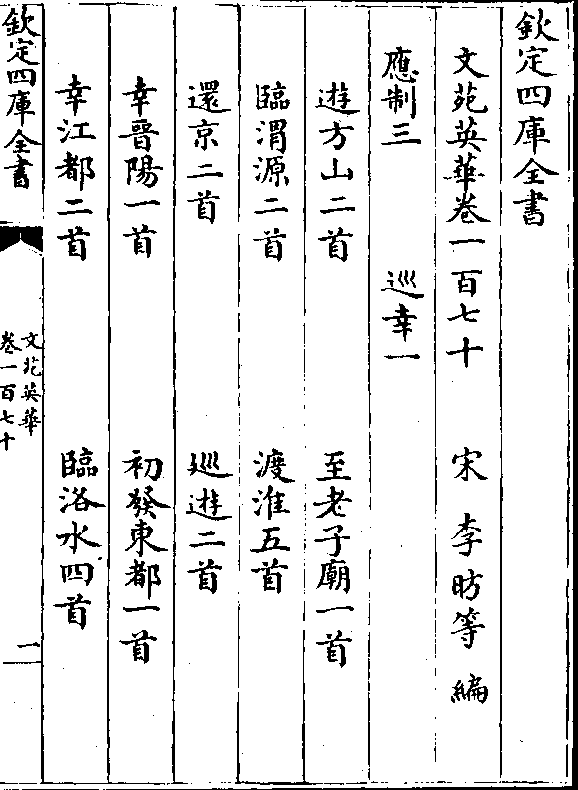 欽定四庫全書
文苑英華卷一百七十　宋　李昉等　編
應制三　巡幸一
遊方山二首　至老子廟一首
臨渭源二首　渡淮五首
還京二首　巡遊二首
幸晉陽一首　初發東都一首
幸江都二首　臨洛水四首
欽定四庫全書
文苑英華
卷一百七十
一